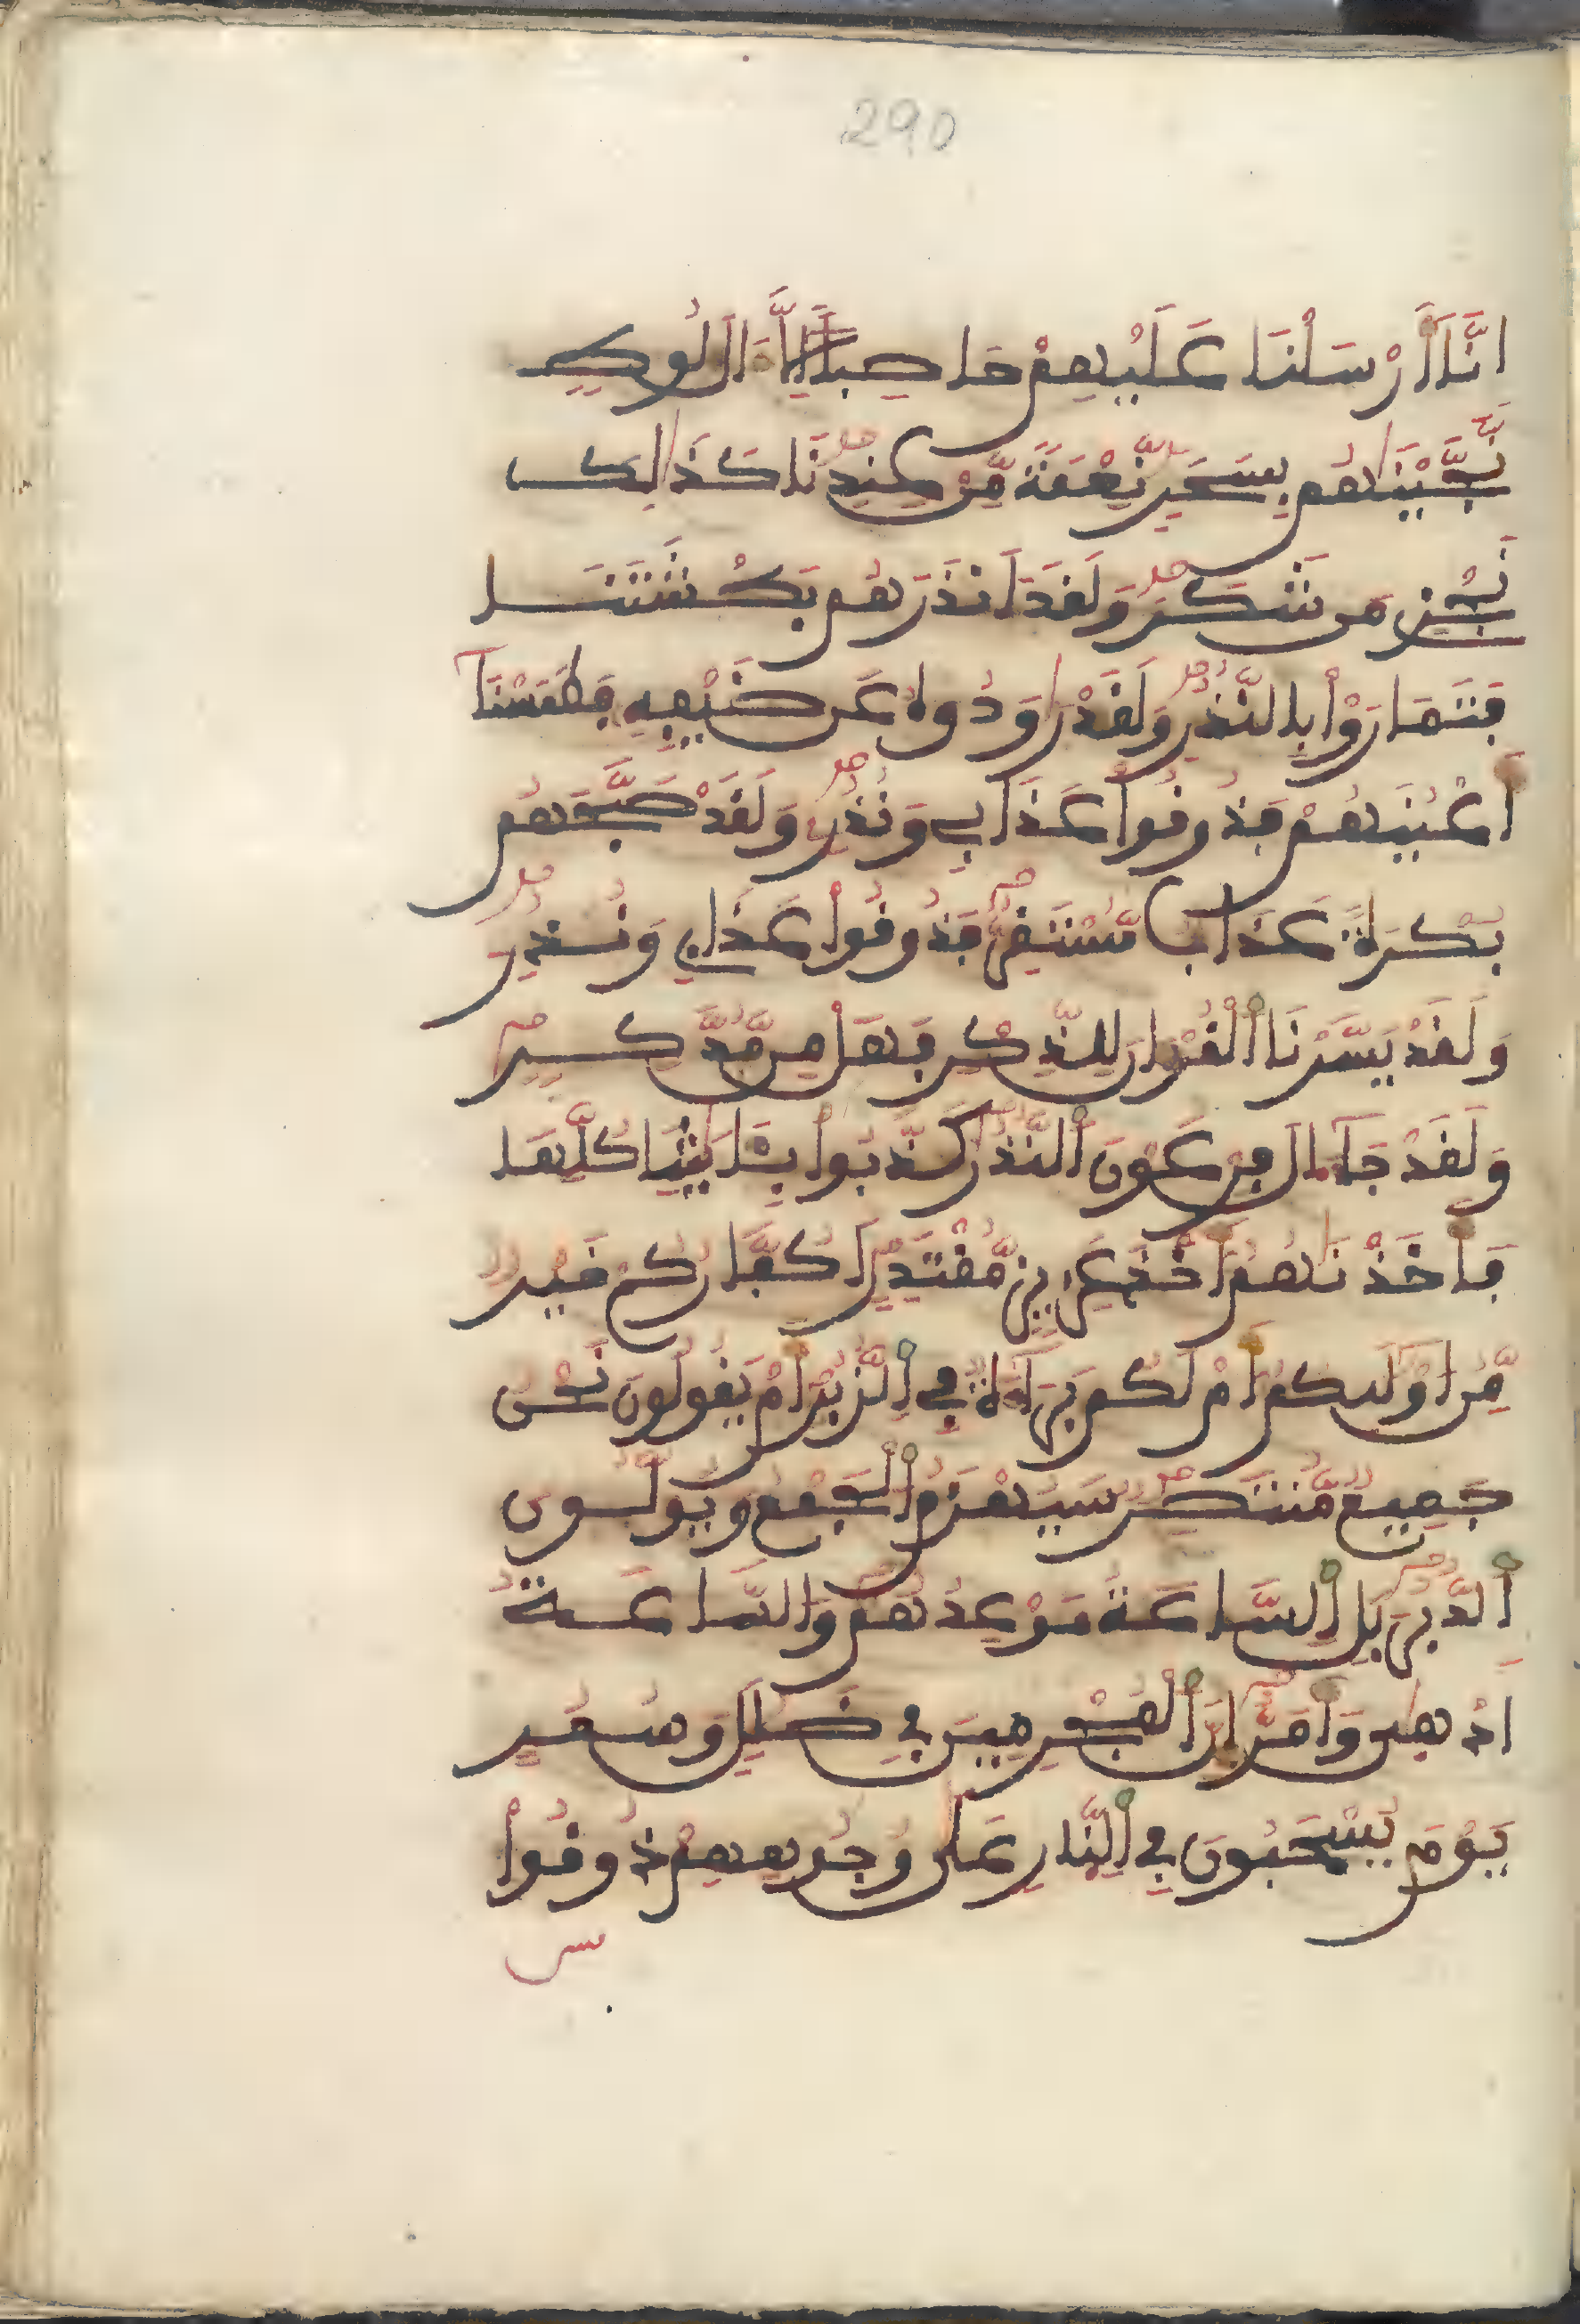 290
اِنَّآ أَرْسَلْنَا عَلَيْهِمْ حَاصِباً اِلَّآ ءَالَ لُوطٍ
نَّجَّيْنَٰهُم بِسَحَرٍ نِّعْمَةً مِّنْ عِندِنَا كَذَٰلِكَ
نَجْزِے مَن شَكَرَ وَلَفَدَ اَنذَرَهُم بَطْشَتَنَا
فَتَمَارَوْاْ بِالنُّذُرِ وَلَفَدْ رَٰوَدُوهُ عَن ضَيْفِهِۦ فَطَمَسْنَآ
أَعْيُنَهُمْ فَذُوفُواْ عَذَابِے وَنُذُرِ وَلَفَدْ صَبَّحَهُم
بُكْرَةً عَذَابٌ مُّسْتَفِرٌّ فَذُوفُواْ عَذَابِے وَنُذُرِ
وَلَفَدْ يَسَّرْنَا أَلْفُرْءَانَ لِلذِّكْرِ فَهَلْ مِن مُّدَّكِرٍ
وَلَفَدْ جَآءَ الَ فِرْعَوْنَ أَلنُّذُرُ كَذَّبُواْ بِـَٔايَٰتِنَا كُلِّهَا
فَأَخَذْنَٰهُمُ أَخْذَ عَزِيزٍ مُّفْتَدِرٍ اَكُفَّارُكُمْ خَيْرٌ
مِّنُ اوْلَٰٓئِكُمُ أَمْ لَكُم بَرَآءَةٌ فِے أِلزُّبُرِ أَمْ يَفُولُونَ نَحْنُ
جَمِيعٌ مُّنتَصِرٌ سَيُهْزَمُ أُلْجَمْعُ وَيُوَلُّونَ
أَلدُّبُرَ بَلِ أِلسَّاعَةُ مَوْعِدُهُمْ وَالسَّاعَةُ
أَدْهَىٰ وَأَمَرُّ إِنَّ أَلْمُجْرِمِينَ فِے ضَلَٰلٍ وَسُعُرٍ
يَوْمَ يُسْحَبُونَ فِے أِلنَّارِ عَلَىٰ وُجُوهِهِمْ ذُوفُواْ
مس